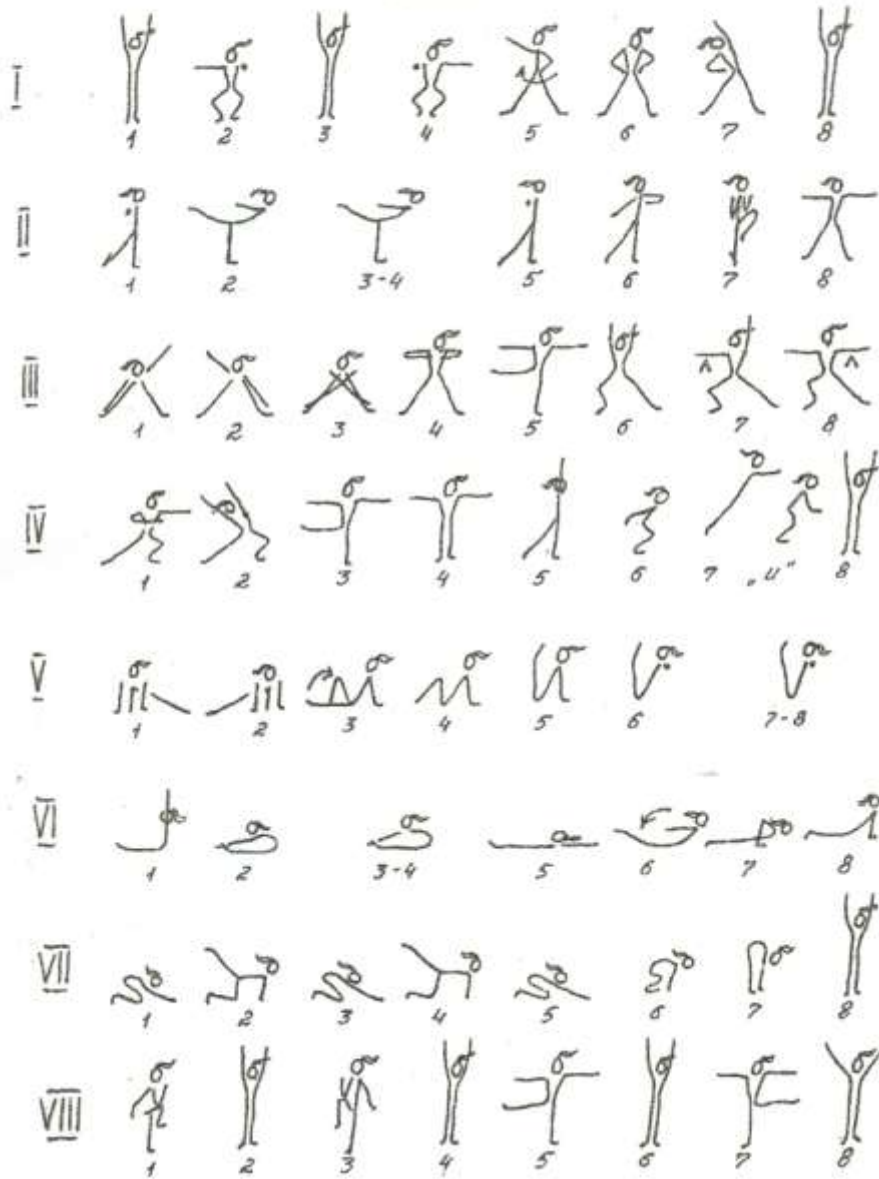 I
1 2 3 4 5 6 7 8
II
1 2 3-4 5 6 7 8
III
1 2 3 4 5 6 7 8
IV
1 2 3 4 5 6 7 „и" 8
V
1 2 3 4 5 6 7-8
VI
1 2 3-4 5 6 7 8
VII
1 2 3 4 5 6 7 8
VIII
1 2 3 4 5 6 7 8